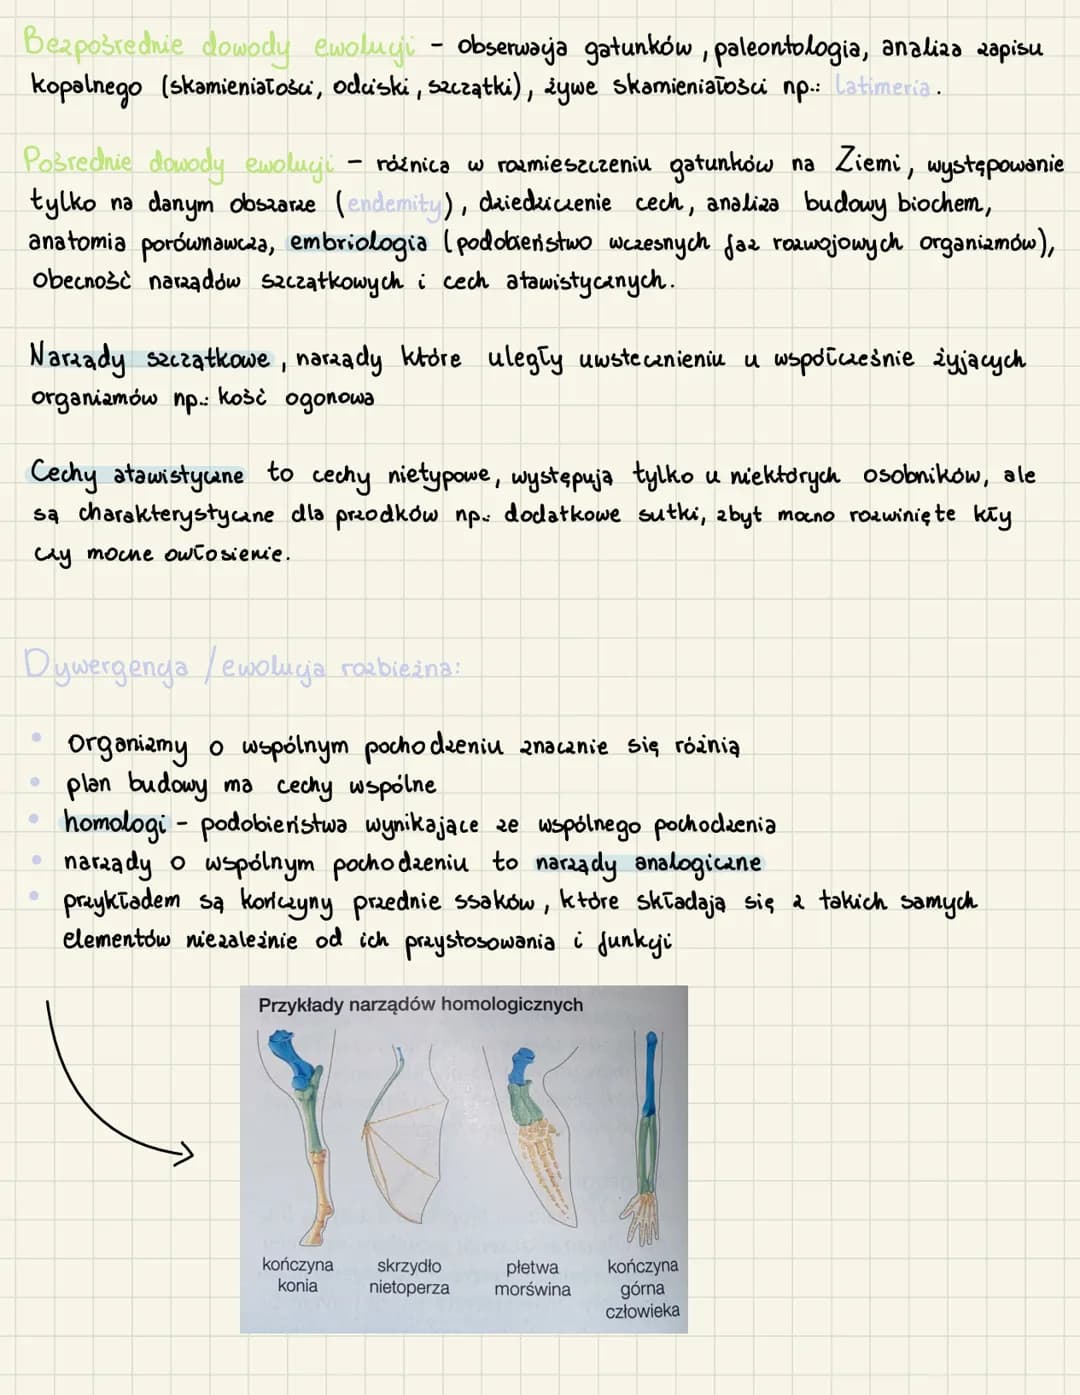 Bezpośrednie dowody ewolucji - obserwacja gatunków, paleontologia, analiza zapisu
kopalnego (skamieniałości, odciski, szczątki), żywe skamieniałości np.: Latimeria.
Pośrednie dowody ewolucji - różnica w rozmieszczeniu gatunków na Ziemi, występowanie
tylko na danym obszarze (endemity), dziedziczenie cech, analiza budowy biochem,
anatomia porównawcza, embriologia (podobieństwo wczesnych faz rozwojowych organizmów),
obecność narządów szczątkowych i cech atawistycznych.
Narządy szczątkowe, narządy które uległy uwstecznieniu u współcześnie żyjących
organizmów np.: kość ogonowa
Cechy atawistyczne to cechy nietypowe, występują tylko u niektórych osobników, ale
są charakterystyczne dla przodków np.: dodatkowe sutki, zbyt mocno rozwinięte kły
czy mocne owłosienie.
Dywergencja / ewolucja rozbieżna:
• Organizmy o wspólnym pochodzeniu znacznie się różnią
• plan budowy ma cechy wspólne
• homologi - podobieństwa wynikające ze wspólnego pochodzenia
• narządy o wspólnym pochodzeniu to narządy analogiczne
• przykładem są kończyny przednie ssaków, które składają się z takich samych
elementów niezależnie od ich przystosowania i funkcji
Przykłady narządów homologicznych
kończyna konia
skrzydło nietoperza
płetwa morświna
kończyna górna człowieka